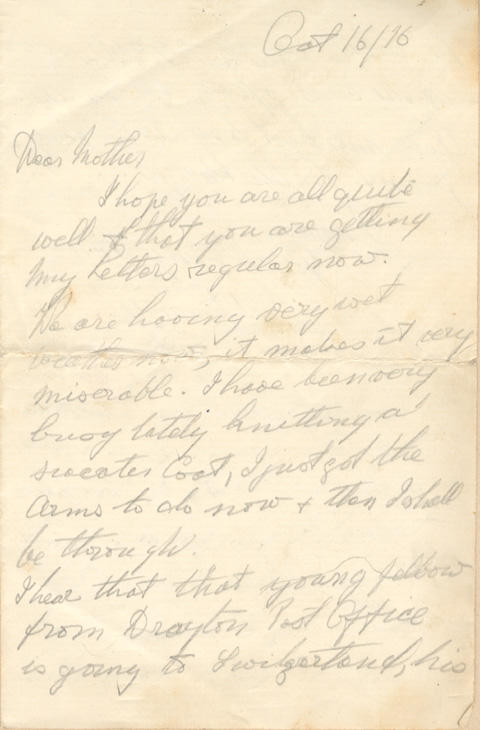 Oct 16/16
Dear Mother
I hope you are all quite
well & that you are getting
my letters regular now.
We are having very wet
weather now, it makes it very
miserable. I have been very
busy lately knitting a
sweater Coat, I just got the
Arms to do now + then I shall
be through.
I hear that that young fellow
from Drayton Post Office
is going to Switzerland, his